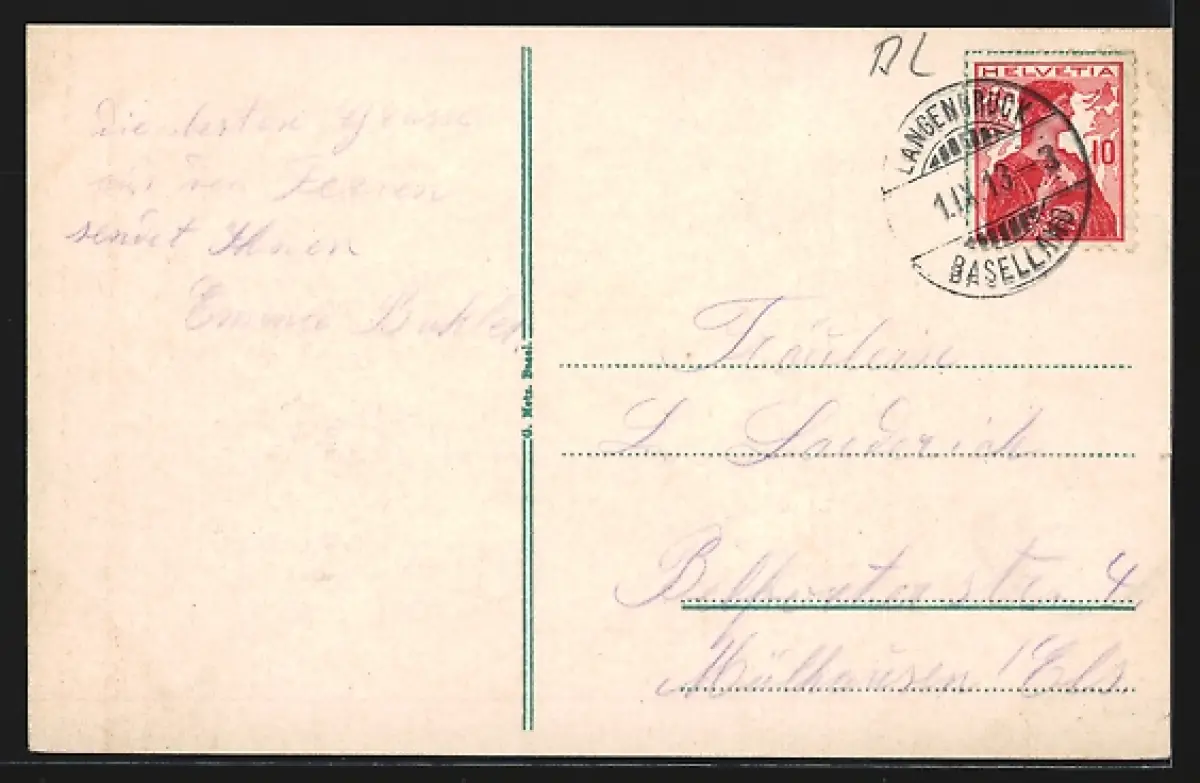 Die besten Grüsse
aus den Ferien
sendet Ihnen
Emma
G. Metz, Basel.
DL
HELVETIA
10
LANGENBRUCK
1.IX.13-3
BASELLAND
Fräulein
L.
Belforterstr. 4
Mülhausen / Els